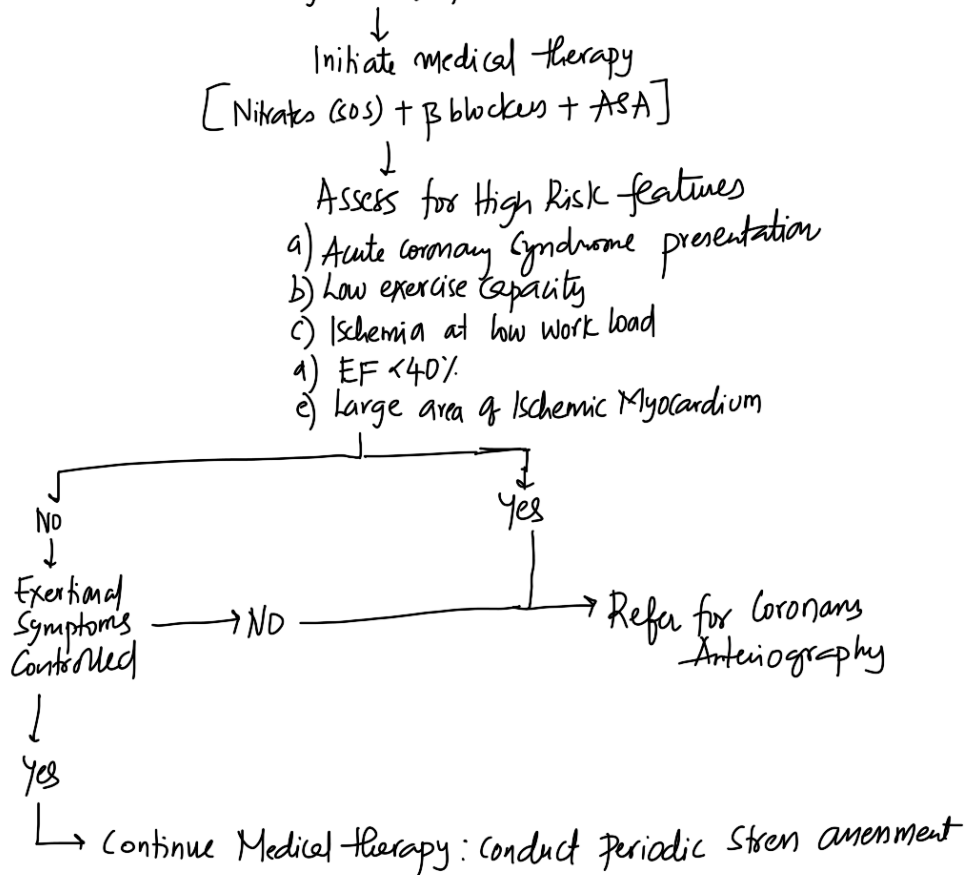 Initiate medical therapy
[Nitrates (SOS) + β blockers + ASA]
Assess for High Risk features
a) Acute coronary Syndrome presentation
b) Low exercise Capacity
c) Ischemia at low work load
d) EF <40%
e) Large area of Ischemic Myocardium
NO
Yes
Exertional
Symptoms
Controlled
NO
Refer for Coronary
Arteriography
Yes
Continue Medical therapy : Conduct Periodic Stress assessment